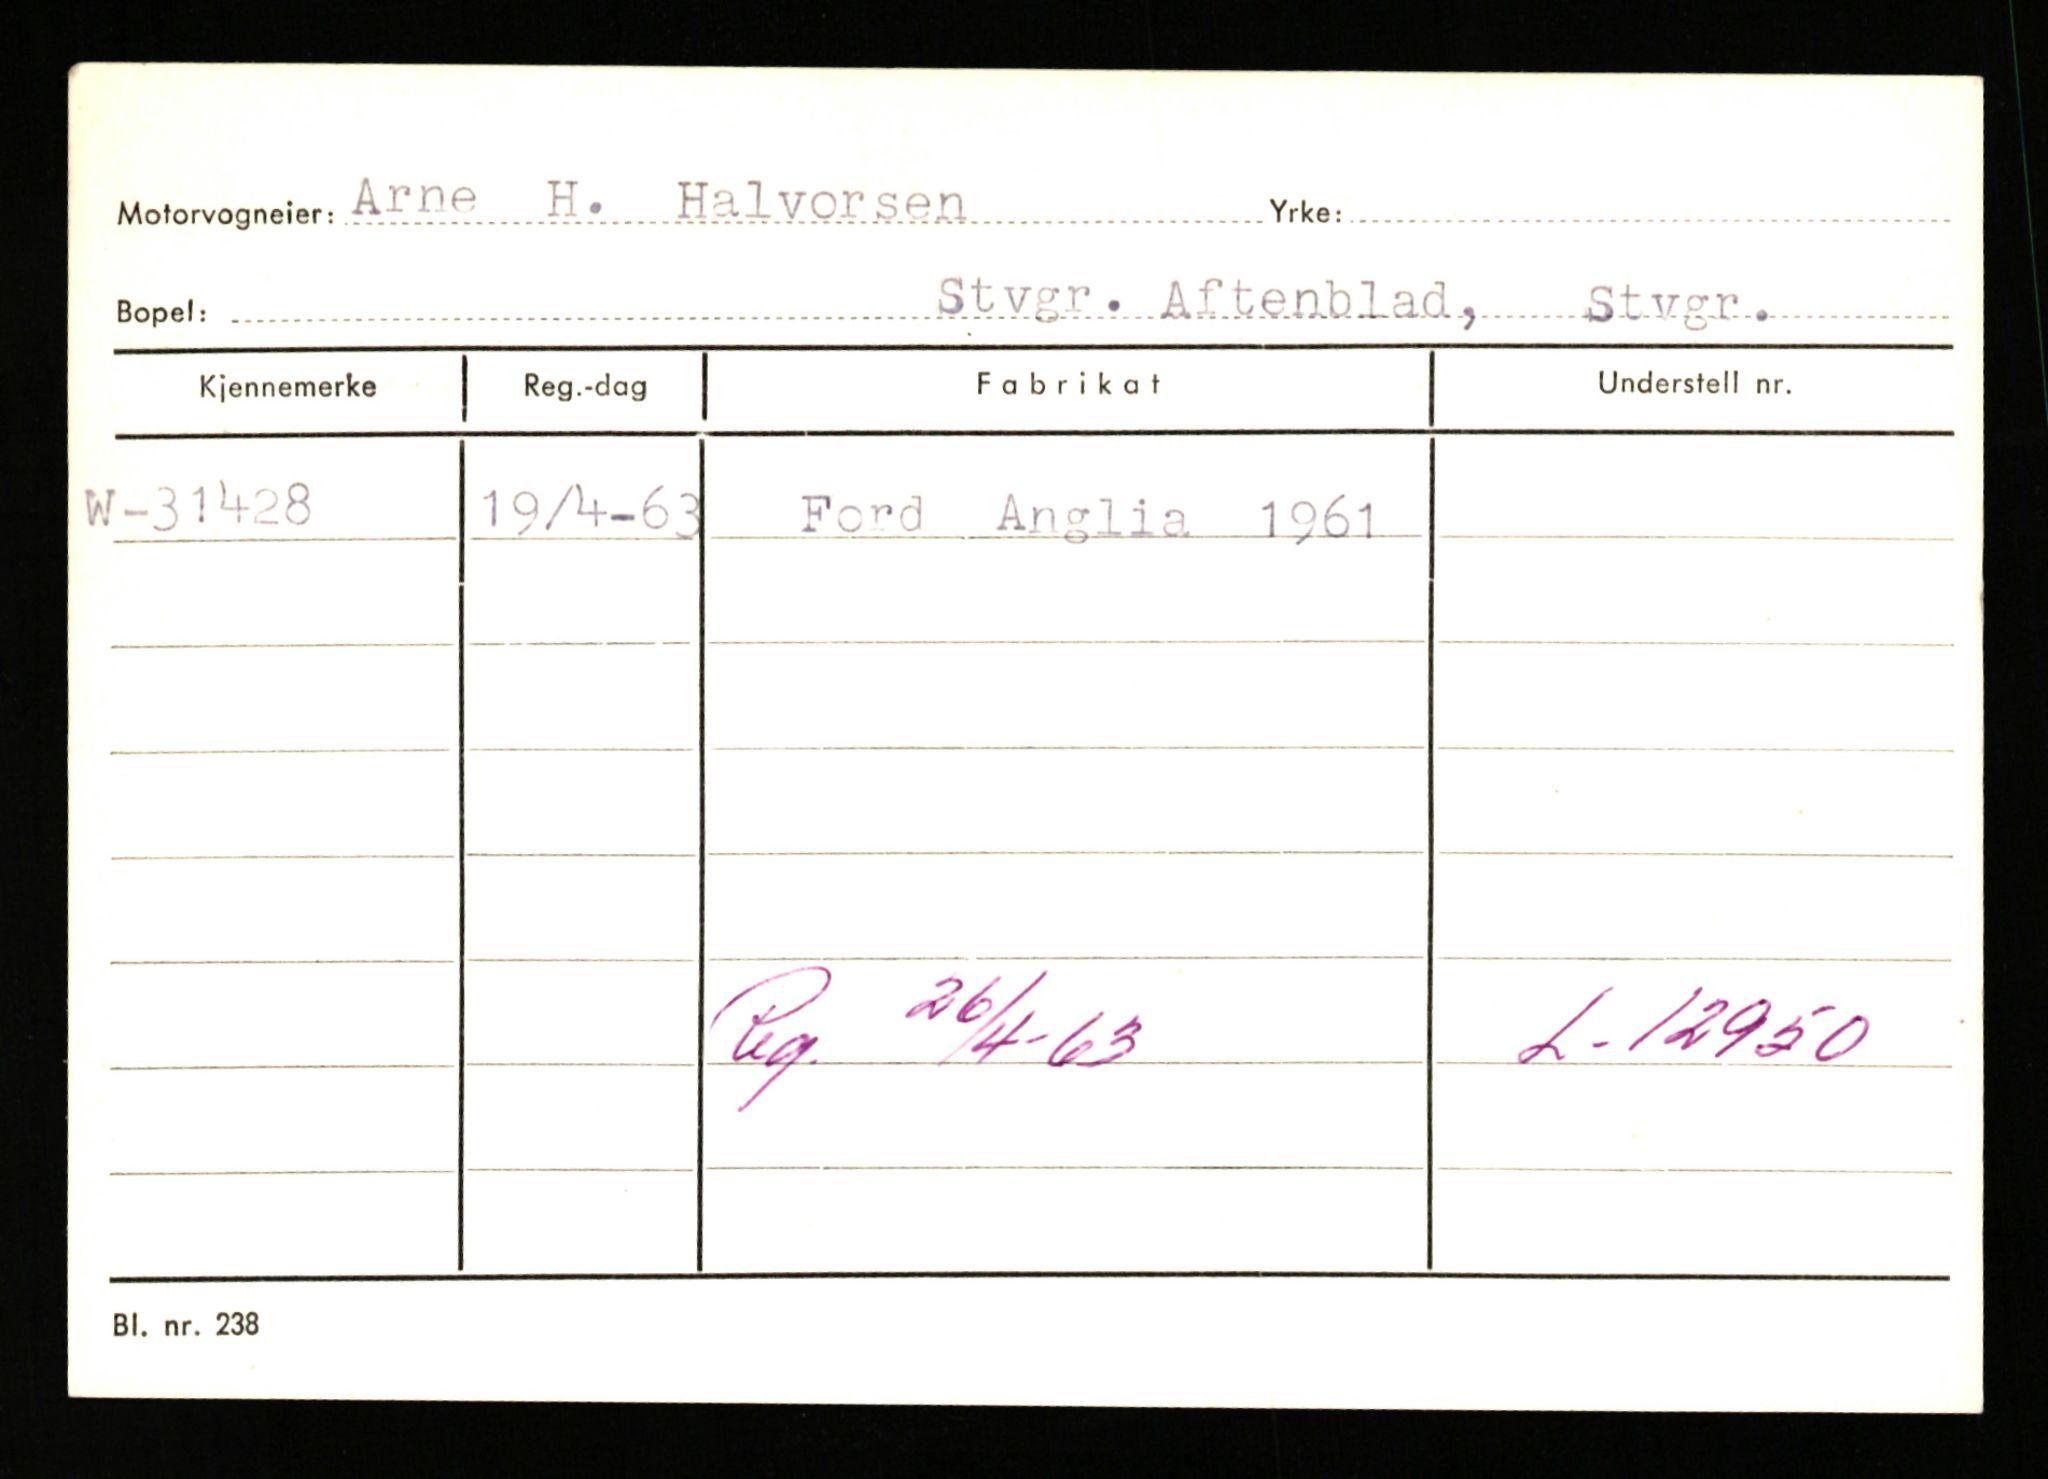 Motorvogneier: Arne H. Halvorsen Yrke:
Bopel: Stvgr. Aftenblad, Stvgr.
Kjennemerke Reg.-dag Fabrikat Understell nr.
W-31428 19/4-63 Ford Anglia 1961
Reg. 26/4-63 L-12950
Bl. nr. 238